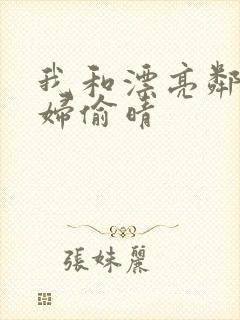 我和漂亮鄰
婦偷晴
張妹麗